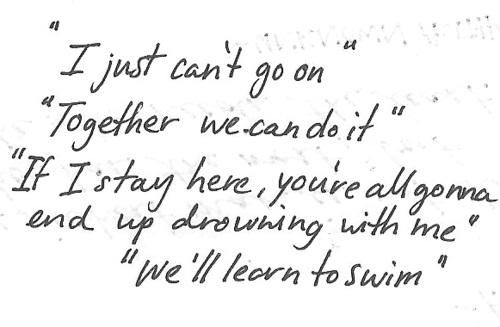 "I just can't go on"
"Together we can do it"
"If I stay here, you're all gonna
end up drowning with me"
"We'll learn to swim"